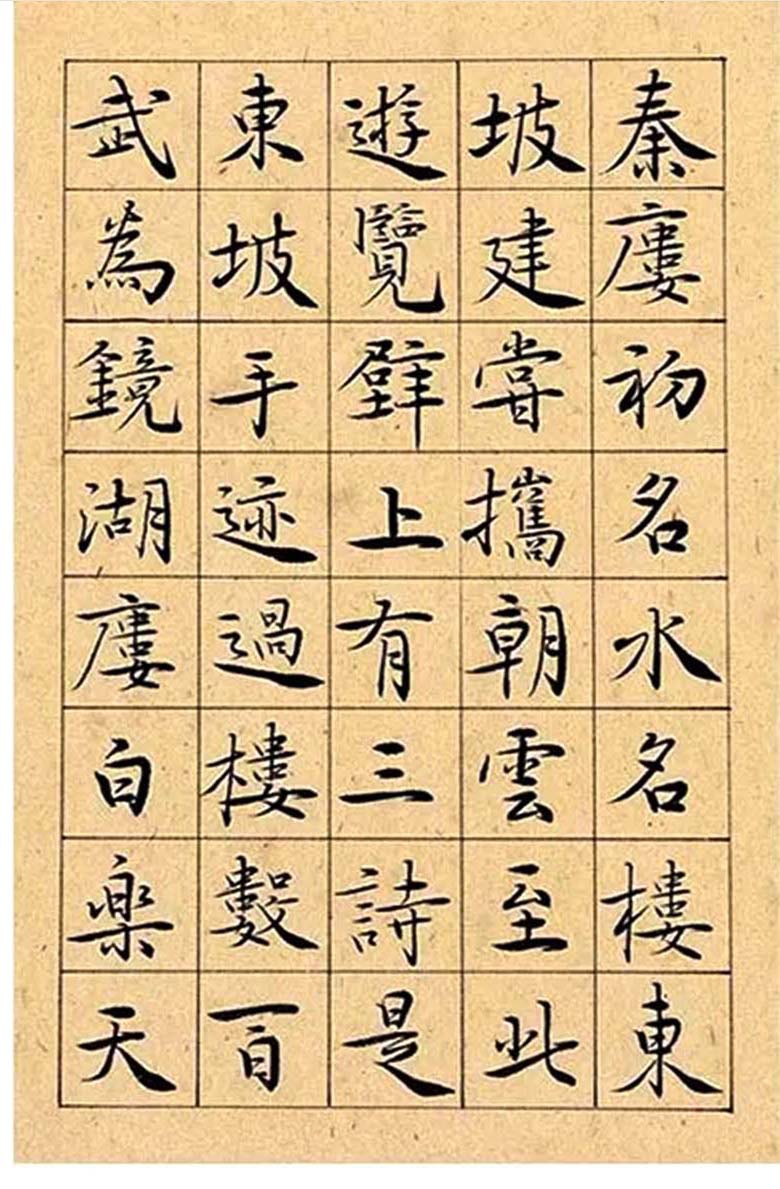 秦廔初名水名樓東
坡建甞攜朝雲至此
遊覽壁上有三詩是
東坡手迹過樓數百
武為鏡湖廔白楽天